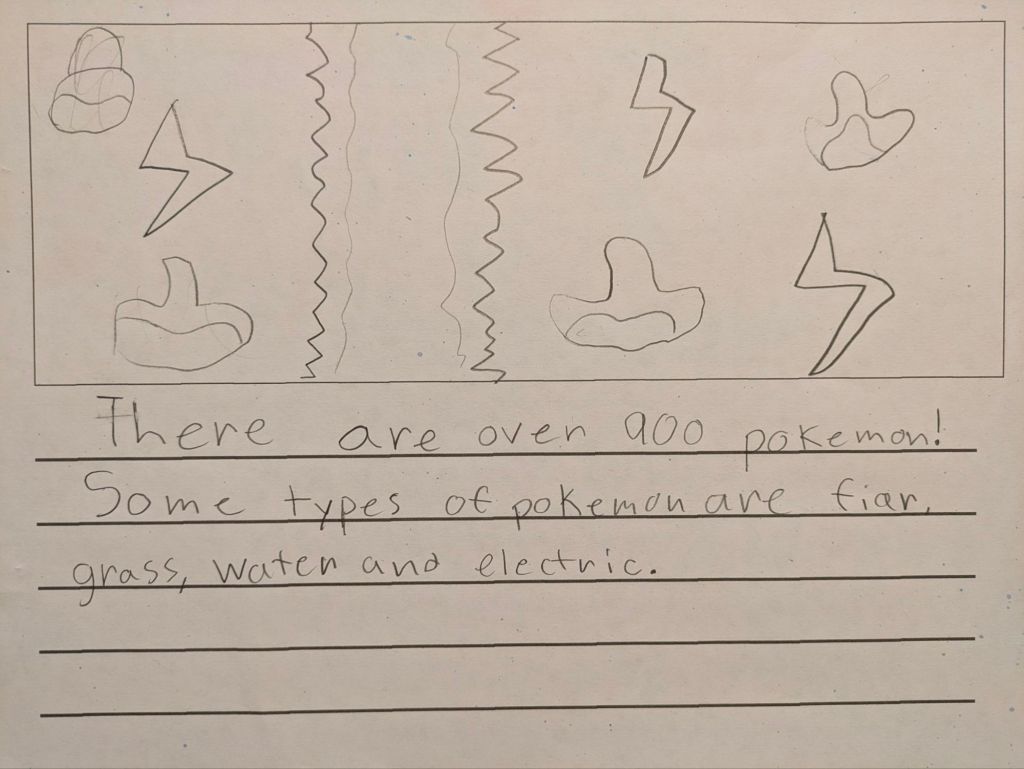 There are over 900 pokemon!
Some types of pokemon are fiar,
grass, water and electric.